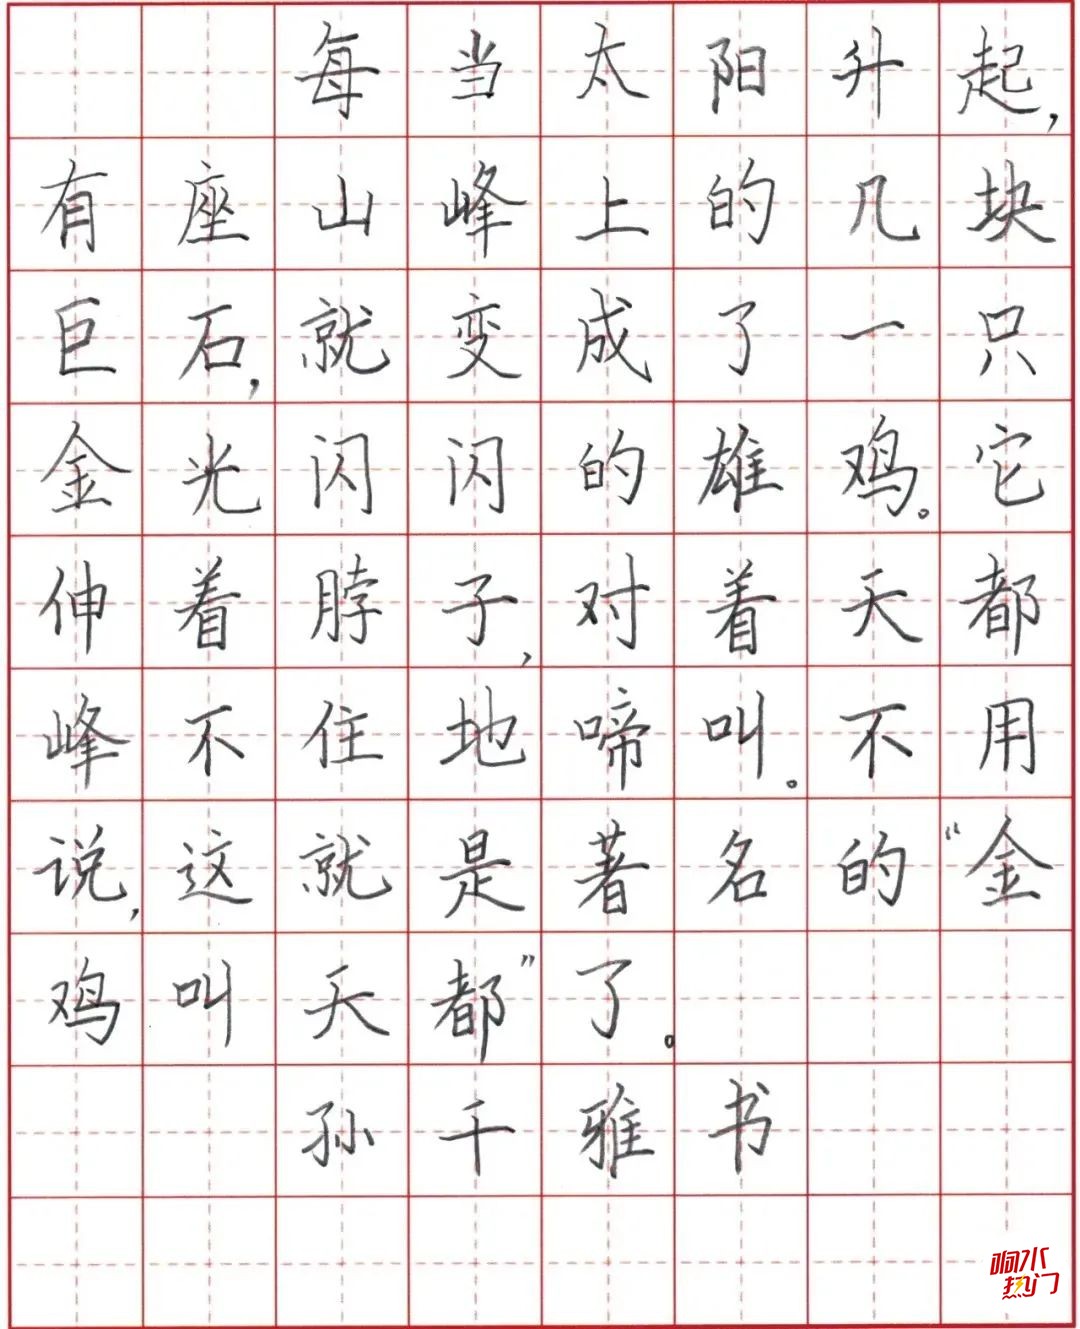 每当太阳升起，
有座山峰上的几块
巨石，就变成了一只
金光闪闪的雄鸡。它
伸着脖子，对着天都
峰不住地啼叫。不用
说，这就是著名的“金
鸡叫天都”了。
孙千雅书
响水
热门